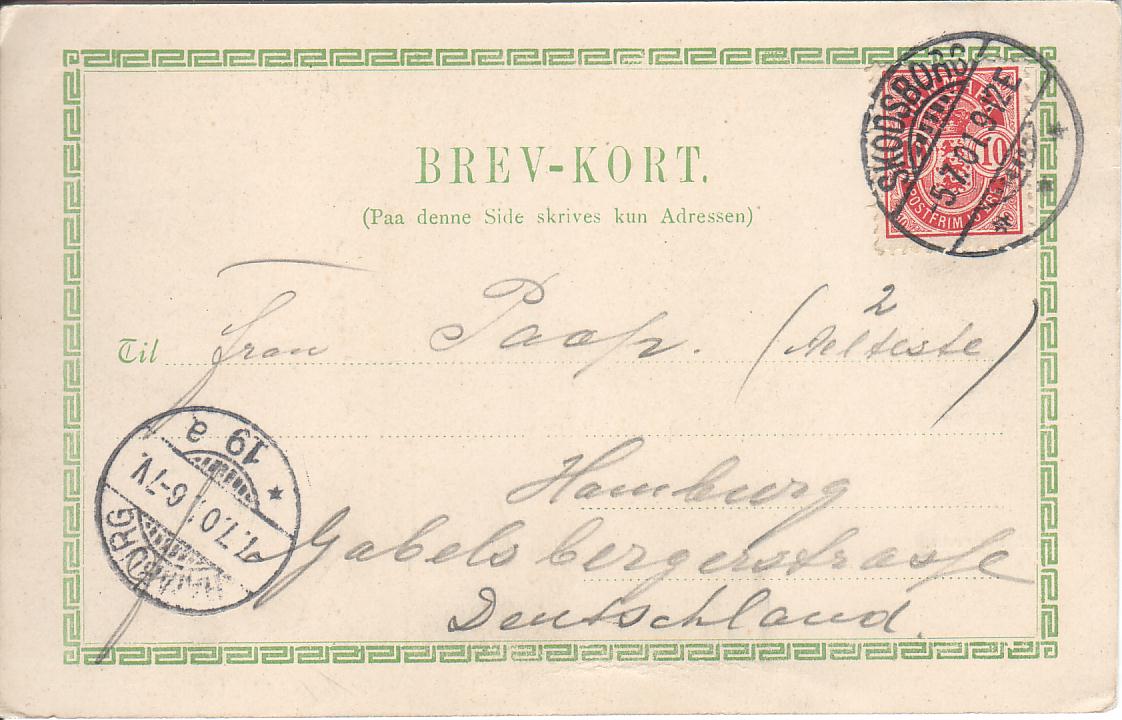 BREV-KORT.
(Paa denne Side skrives kun Adressen)
SKODSBORG
5.7.01. 9-12E
10
POSTFRIM
Til Frau Paap. (Aelteste)
2
Hamburg
Gabelsbergerstrasse
Deutschland.
19 a
7.01. 6-7V.